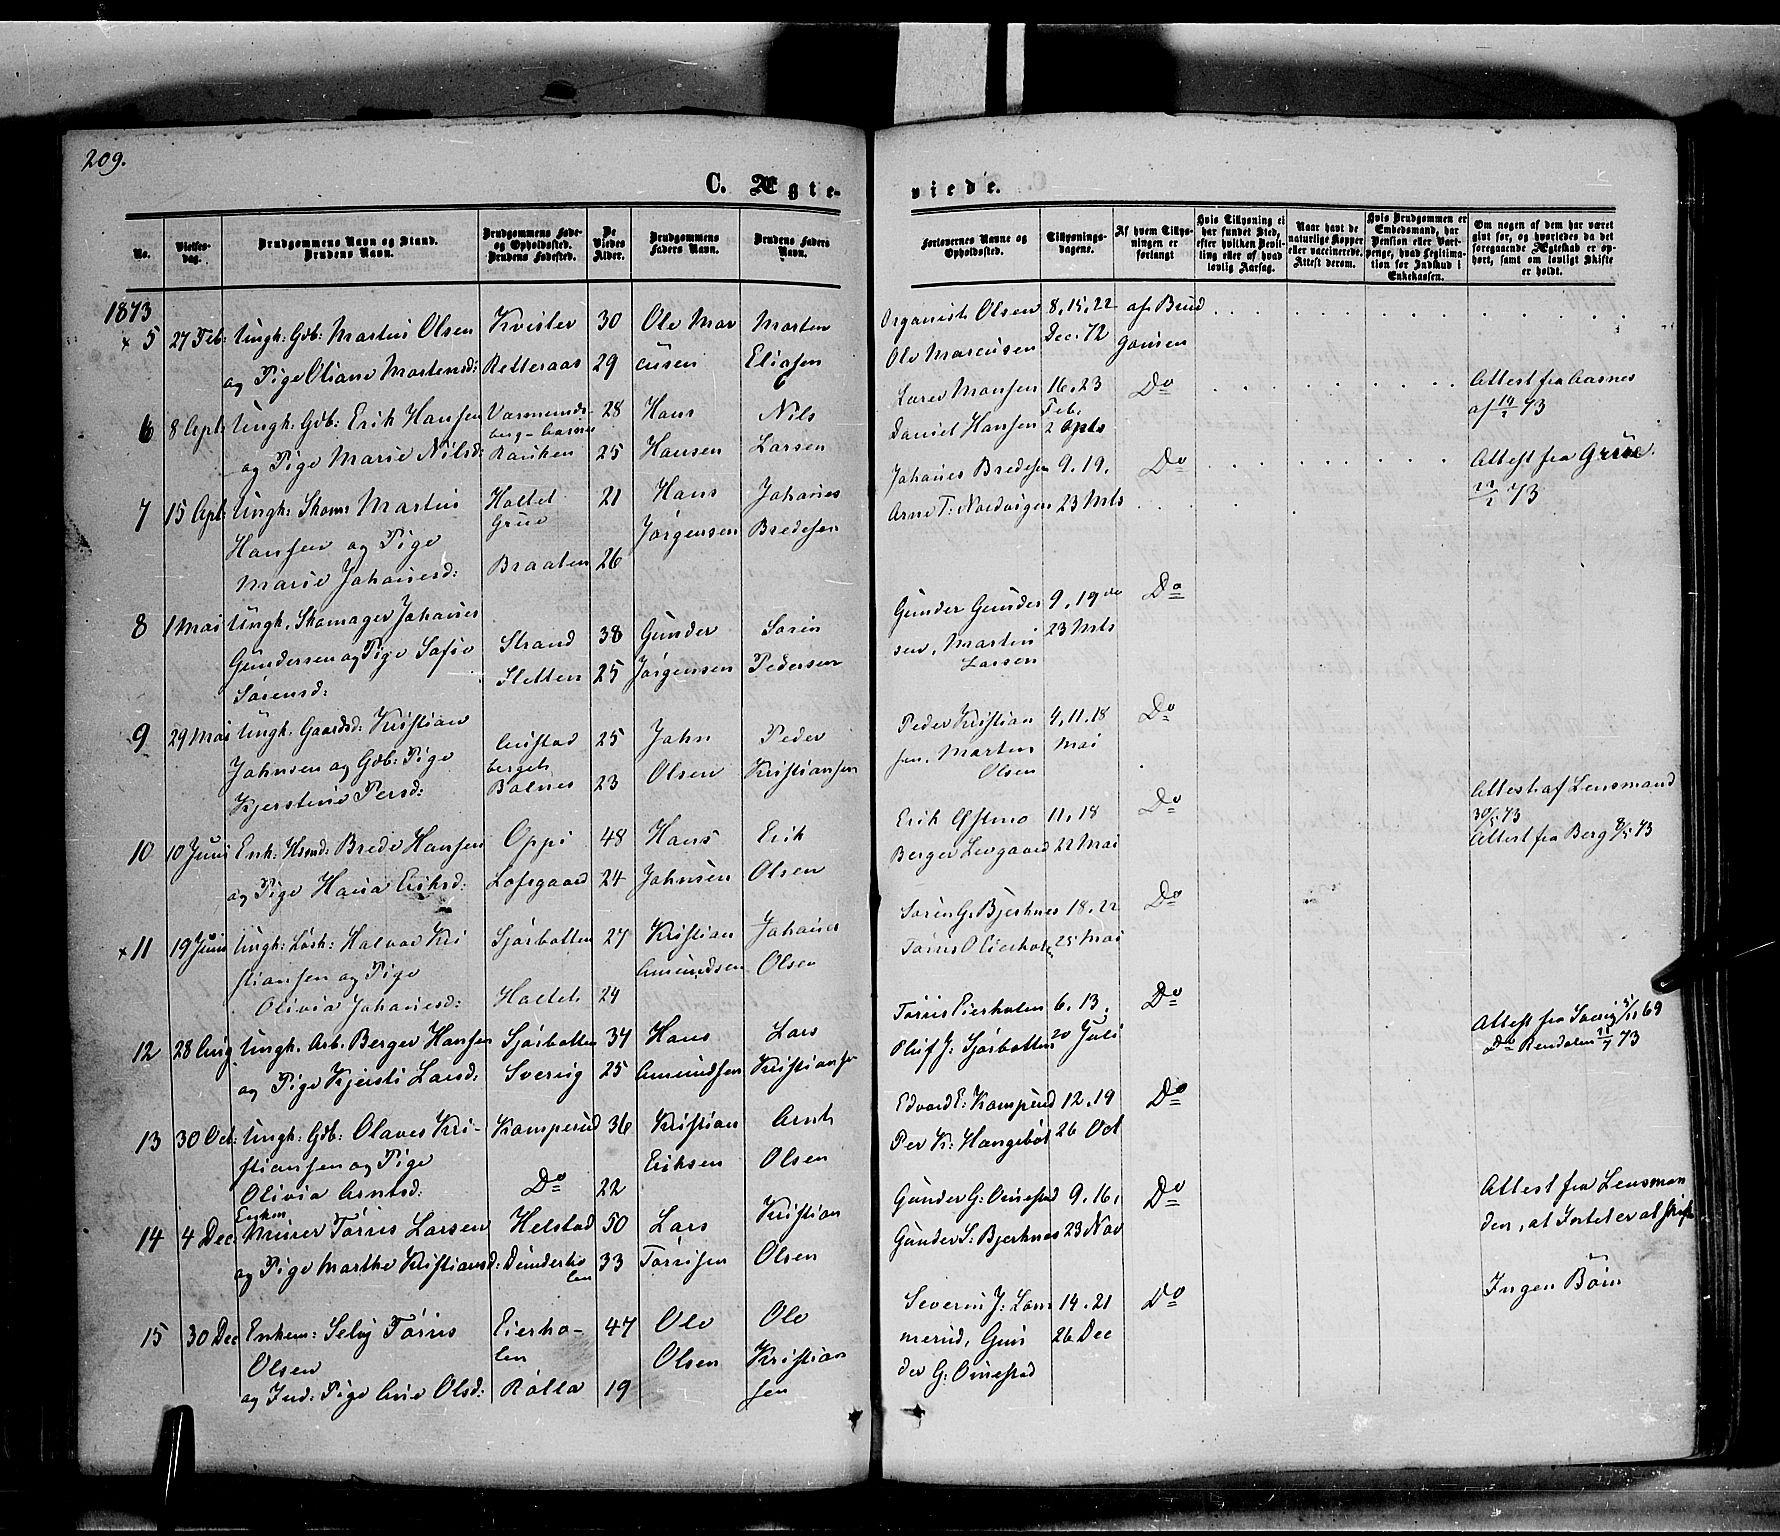 209.
C. Ægte-
viede.
No.
Vielses-
dag.
Brudgommens Navn og Stand.
Brudens Navn.
Brudgommens Føde-
og Opholdssted.
Brudens Fødested.
De
Viedes
Alder.
Brudgommens
Faders Navn.
Brudens Faders
Navn.
Forlovernes Navne og
Opholdssted.
Tillysnings-
dagene.
Af hvem Tillys-
ningen er
forlangt
Hvis Tillysning ei
har fundet Sted,
efter hvilken Bevil-
ling eller af hvad
lovlig Aarsag.
Naar havt de
naturlige Kopper
eller vaccinerede.
Attest derom.
Hvis Brudgommen er
Embedsmand, har
Pension eller Vart-
penge, hvad Legitima-
tion for Indskud i
Enkekassen.
Om nogen af dem har været
gift før, og hvorledes da det
foregaaende Ægteskab er op-
hørt, samt om lovligt Skifte
er holdt.
1873
× 5 27 Feb: Ungk: Gdb: Martin Olsen Kvisler 30 Ole Mar Morten Organist Olsen 8, 15, 22 af Brud
og Pige Oliane Mortensd: Retteraas 29 cusen Eliasen Ole Marcusen Dec. 72 gomen
6 8 Apl: Ungk: Gdb: Erik Hansen 28 Hans Nils Hansen 16, 23 Do Attest fra Aasnes
og Pige Marie Nilsd: 25 Hansen Larsen Daniel Hansen Feb. 2 73
7 15 Apl: Ungk: Skom: Martin Holtet 21 Hans Johanes Johanes Bredesen 9, 19. Do Attest fra Grue.
Hansen og Pige Grue Jørgensen Bredesen Arne T. 23 Mts 73
Marie Johanesd: Braaten 26
8 1 Mai Ungk. Skomager Johanes Strand 38 Gunder Sørin Gunder Gunder 9, 19 Do
Gundersen og Pige Sofie Sletten 25 Jørgensen Pedersen sen, Martin 23 Mts
Sørensd: Larsen
9 29 Mai Ungk. Gaardsd: Kristian 25 John Peder Peder Kristian 4, 11, 18 Do
Johnsen og Gdb: Pige berget Olsen Kristiansen sen, Martin Mai
Kjerstine Persd: Bolnes 23 Olsen
10 10 Juni Enk: Hsmd: Brede Hansen Oppi 48 Hans Erik Erik 11, 18 Do Attest af Lensmand
30/5 73
og Pige Hana Eriksd: Lofsgaard 24 Johnsen Olsen Berger Levgaard 22 Mai Attest fra Berg 8/5 73
× 11 19 Juni Ungk: Løsk: Halvor Kri Sjørbotten 27 Kristian Johanes Søren G. Bjerknes 18, 22 Do
stiansen og Pige Amundsen Olsen 25 Mai
Olivia Johanesd: Holtet 24
12 28 Aug Ungk. Arb. Berger Hansen Sjørbotten 34 Hans Lars Tørris Eierholen 6, 13, Do Attest fra Sverig 69
og Pige Kjersti Larsd: Sverig 25 Amundsen Kristians Oluf J: Sjørbotten 20 Juli Do Rendalen 73
13 30 Oct: Ungk: Gdb: Olaves Kri- Kamperud 36 Kristian Arnt Edvard E: Kamperud 12, 19 Do
stiansen og Pige Eriksen Olsen Per K: 26 Oct
Olivia Arntsd: Do 22
14 4 Dec Enkm Murer Tørris Larsen Helstad 50 Lars Kristian Gunder G: Onestad 9, 16, Do Attest fra Lensman
og Pige Marthe Kristiansd: Dunderho 33 Tørrisen Olsen Gunder S: Bjerknes 23 Nov den, at Intet er at skift
len Ingen Børn
15 30 Dec Enkem: Selvj Tørris Eierho- 47 Ole Ole Severin J: Lam 14, 21 Do
Olsen len Olsen Kristian merud, Gun 26 Dec
og Ind: Pige Ane Olsd: Rølla 19 sen der G: Onestad